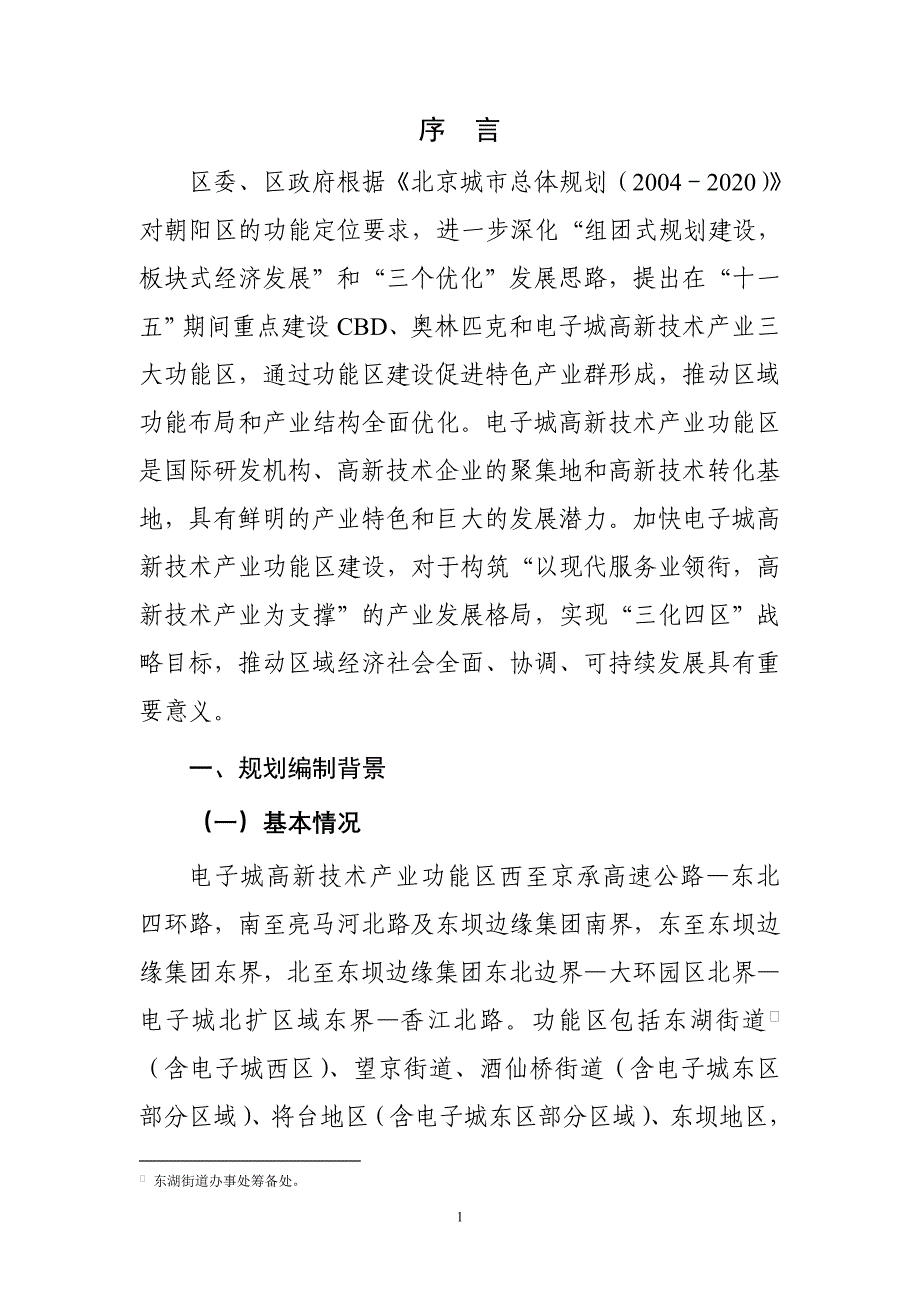 序　言
区委、区政府根据《北京城市总体规划（2004－2020）》
对朝阳区的功能定位要求，进一步深化“组团式规划建设，
板块式经济发展”和“三个优化”发展思路，提出在“十一
五”期间重点建设 CBD、奥林匹克和电子城高新技术产业三
大功能区，通过功能区建设促进特色产业群形成，推动区域
功能布局和产业结构全面优化。电子城高新技术产业功能区
是国际研发机构、高新技术企业的聚集地和高新技术转化基
地，具有鲜明的产业特色和巨大的发展潜力。加快电子城高
新技术产业功能区建设，对于构筑“以现代服务业领衔，高
新技术产业为支撑”的产业发展格局，实现“三化四区”战
略目标，推动区域经济社会全面、协调、可持续发展具有重
要意义。
一、规划编制背景
（一）基本情况
电子城高新技术产业功能区西至京承高速公路—东北
四环路，南至亮马河北路及东坝边缘集团南界，东至东坝边
缘集团东界，北至东坝边缘集团东北边界—大环园区北界—
电子城北扩区域东界—香江北路。功能区包括东湖街道
（含电子城西区）、望京街道、酒仙桥街道（含电子城东区
部分区域）、将台地区（含电子城东区部分区域）、东坝地区，
东湖街道办事处筹备处。
1